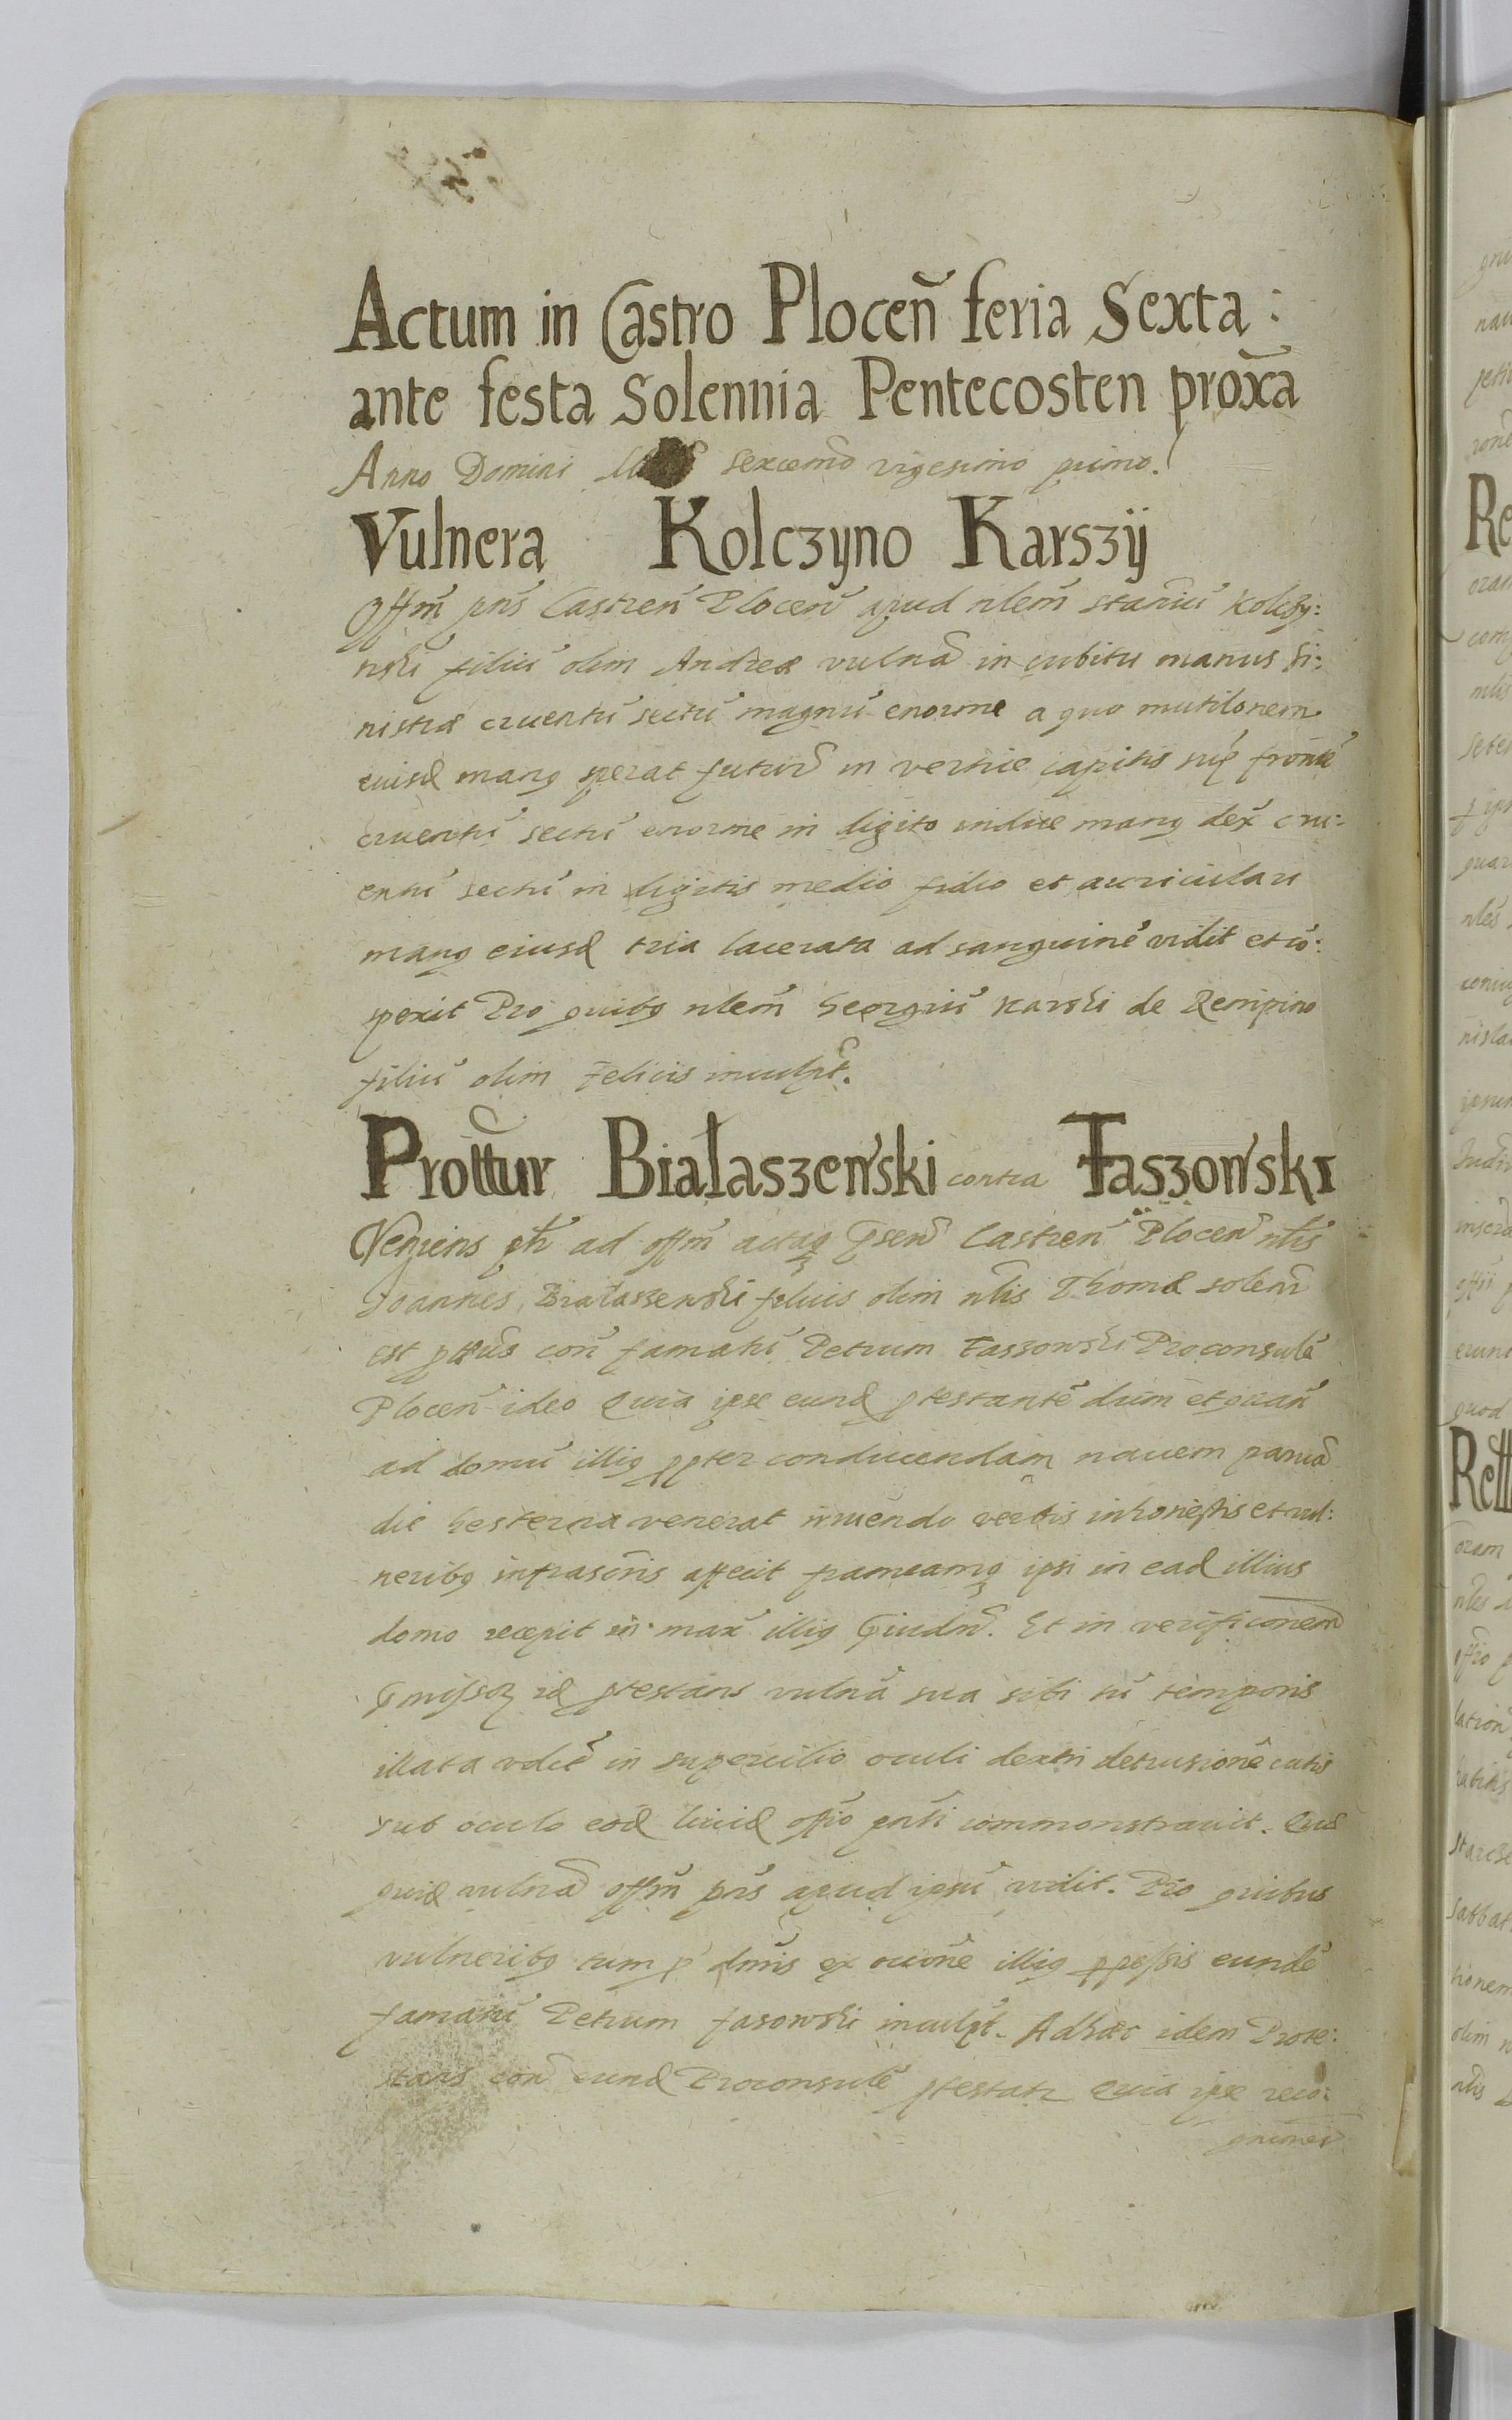 Actum in Castro Plocen̄ feria Sexta :
ante festa Solennia Pentecosten prox̄a
Anno Domini Sexcemō vigesimo primo.
Vulnera Kolczyno Karszÿ
Offm̄ pn̄s Castren̄ Plocen̄ apud nlem̄ Kolczy:
nski filiū olim Andreæ vulnā in cubitu manus si:
nistræ cruentū sectū magnū enorme a quo mutilonem
eiusd man9 sperat futur̄ in vertice capitis sup frontē
cruentū sectū enorme in digito indice man9 dex̄ cru:
entū sectū in digitis medio fidio et auriculari
man9 eiusd tria lacerata ad sanguinē vidit et cō:
spexit Pro quib9 nlem̄ Georgiū Karski de Rempino
filiū olim Felicis inculpt.
Protttur Białaszewski contra Faszowski
Veniens ad offm̄ actaq3 p̄sen̄ Castren̄ Plocen̄ nlis
Joannes Białaszewski filius olim nlis Thomæ solen̄
est con̄ famatū Petrum Faszowski Proconsulē
Plocen̄ ideo Quia ipse eund ptestantē dum et quan̄
ad domū illi9 ppter conducendam navem parvā
die hesterna venerat irruendo verbis inhonestis et vul:
nerib9 infrascr̄is affecit frameamq3 ipsi in ead illius
domo recepit in max̄ illi9 p̄iudm̄. Et in verificonem
p̄missor id ptestans vulnā sua sibi tū temporis
illata vdet in supercilio oculi dextri detrusionē cutis
sub oculo eod livid offio pn̄ti commonstravit. Quæ
quid vulnā offm̄ pn̄s apud ipsū vidit. Pro quibus
vulnerib9 tum p dmnis ex occōne illi9 ppessis eundē
famatū Petrum Fasowski inculpt. Adhæc idem Prote:
stans con̄ eund Proconsulē ptestatr Quia ipse reco: